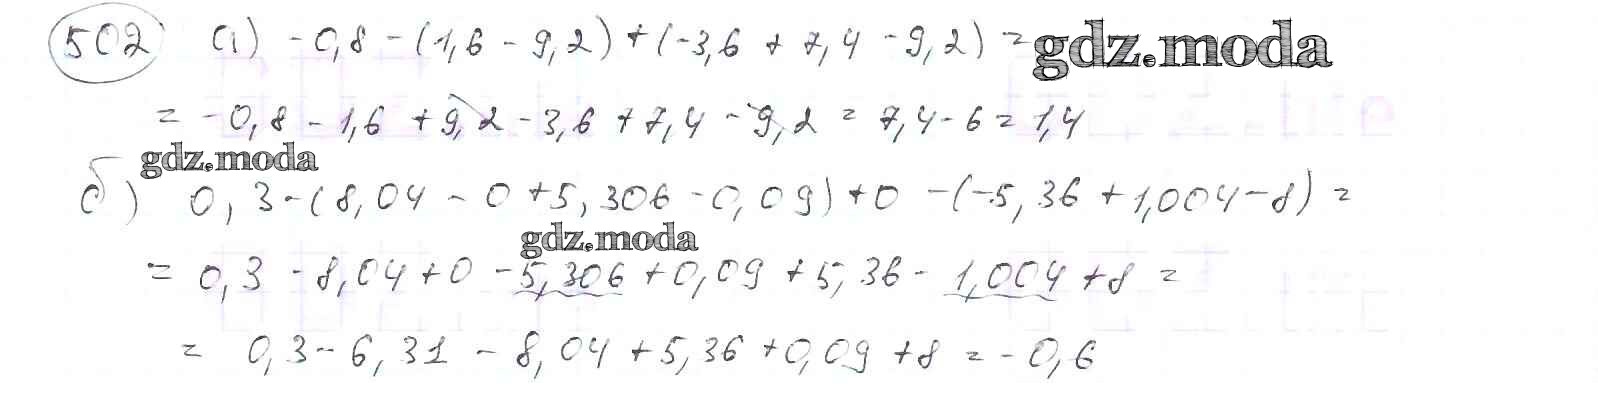 502 а) -0,8 - (1,6 - 9,2) + (-3,6 + 7,4 - 9,2) = gdz.moda
= -0,8 - 1,6 + 9,2 - 3,6 + 7,4 - 9,2 = 7,4 - 6 = 1,4
gdz.moda
б) 0,3 - (8,04 - 0 + 5,306 - 0,09) + 0 - (-5,36 + 1,004 - 8) =
gdz.moda
= 0,3 - 8,04 + 0 - 5,306 + 0,09 + 5,36 - 1,004 + 8 =
= 0,3 - 6,31 - 8,04 + 5,36 + 0,09 + 8 = -0,6